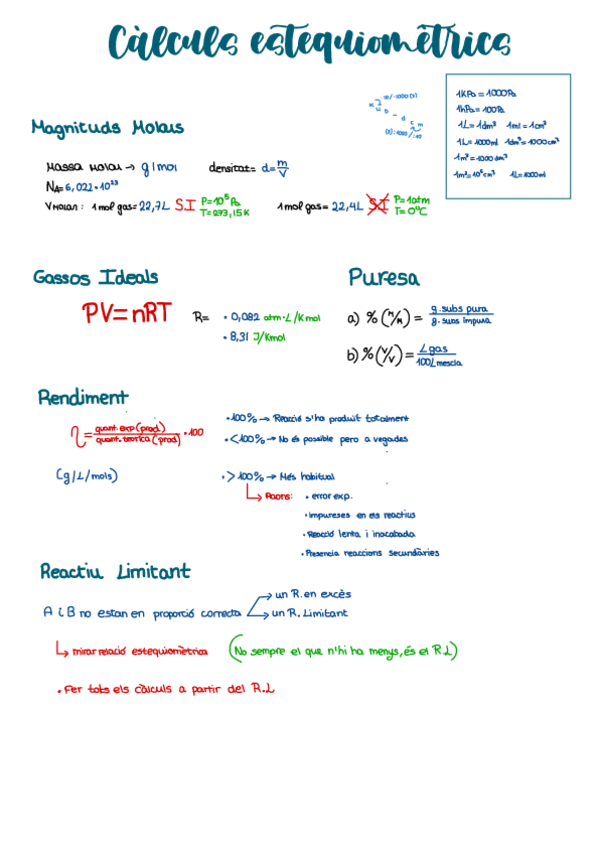 Càlculs estequiomètrics
1KPa = 1000Pa
1hPa = 100Pa
1L = 1dm³ 1ml = 1cm³
1L = 1000ml 1dm³ = 1000cm³
1m³ = 1000dm³
1m³ = 10⁶cm³ 1L = 1000ml
Magnituds Molars
Massa Molar → g/mol densitat = d = m/V
NA = 6,022·10²³
V Molar: 1mol gas = 22,7L S.I P = 10⁵Pa T = 273,15K 1mol gas = 22,4L S.I P = 1atm T = 0°C
Gassos Ideals
PV = nRT R = · 0,082 atm·L/Kmol
· 8,31 J/Kmol
Puresa
a) % (m/m) = g.subs pura / g.subs impura
b) % (V/V) = L gas / 100L mescla
Rendiment
η = quant.exp(prod) / quant.teòrica(prod) · 100
(g/L/mols)
· 100% → Reacció s'ha produït totalment
· <100% → No és possible pero a vegades
· >100% → Més habitual
Raons: · error exp.
· Impureses en els reactius
· Reacció lenta i inacabada
· Presencia reaccions secundàries
Reactiu Limitant
A i B no estan en proporció correcta → un R. en excès
→ un R. Limitant
mirar relació estequiomètrica (No sempre el que n'hi ha menys, és el R.L)
· Fer tots els càlculs a partir del R.L